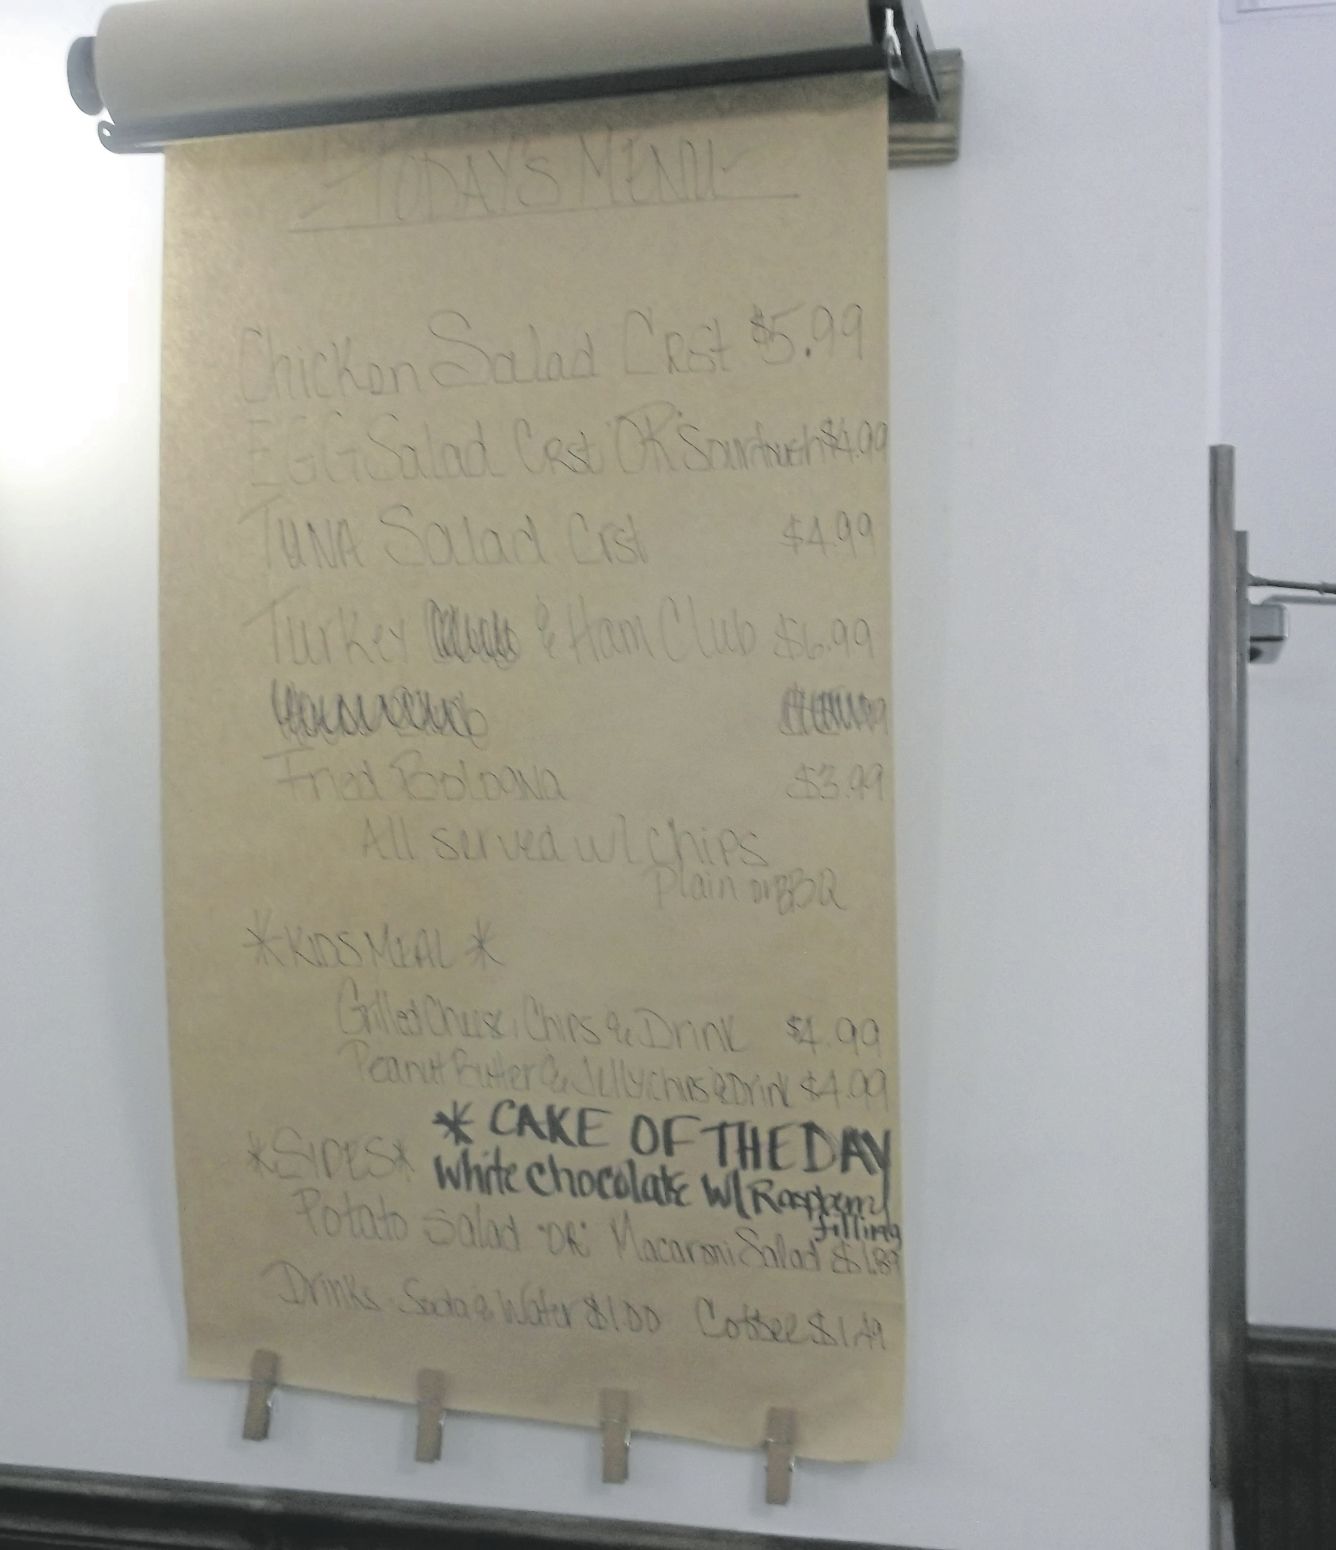 -TODAY'S MENU-
Chicken Salad Crst $5.99
EGG Salad Crst "OR" Sourdough $4.99
TUNA Salad Crst $4.99
Turkey & Ham Club $6.99
Fried Bologna $3.99
All served w/ chips
Plain or BBQ
*KIDS MEAL*
Grilled Cheese, Chips & Drink $4.99
Peanut Butter & Jelly Chips & Drink $4.99
* CAKE OF THE DAY
White Chocolate w/ Raspberry
filling
*SIDES*
Potato Salad "OR" Macaroni Salad $1.89
Drinks - Soda & Water $1.00 Coffee $1.49